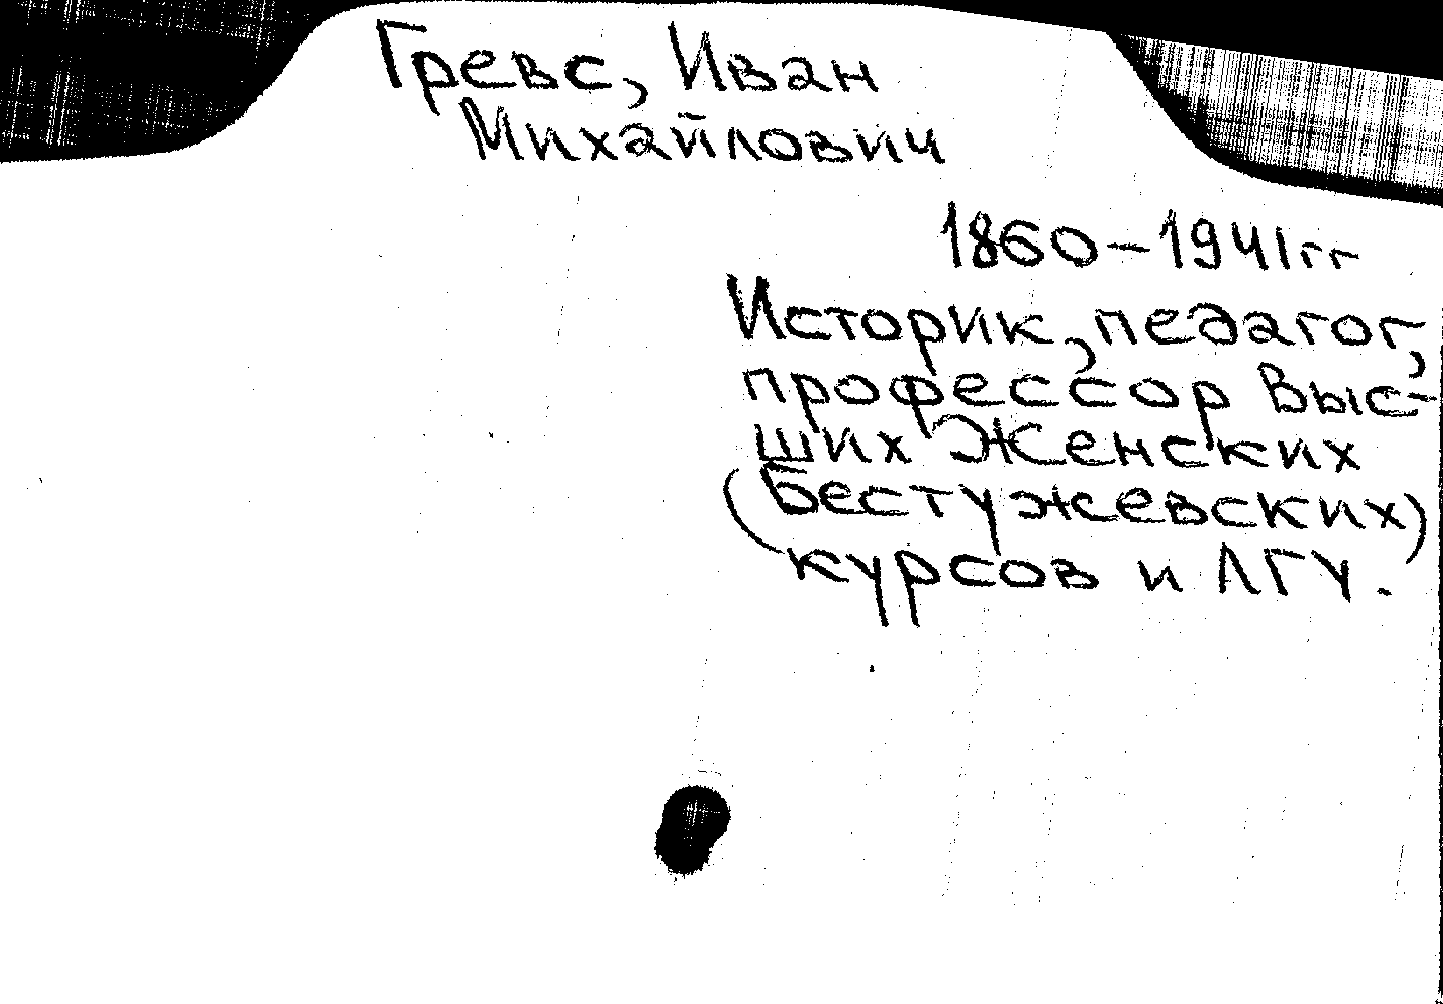 Гревс, Иван
Михайлович
1860-1941гг
Историк, педагог,
профессор Выс-
ших Женских
(Бестужевских)
курсов и ЛГУ.